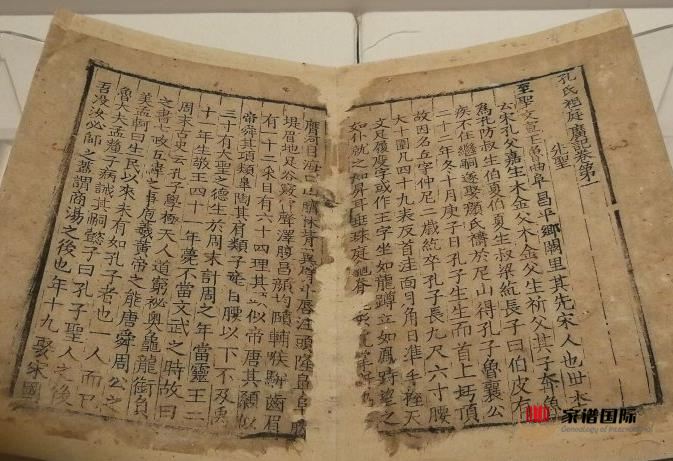 孔氏祖庭廣記卷第一
先聖
至聖文宣王魯曲阜昌平鄉闕里其先宋人也世本
云宋孔父嘉生木金父木金父生祈父其子奔魯
為孔防叔生伯夏伯夏生叔梁紇長子曰伯皮有
疾不任繼嗣遂娶顏氏禱於尼山得孔子魯襄公
二十二年冬十月庚子日孔子生生而首上圩頂
故因名丘字仲尼二歲紇卒孔子長九尺六寸腰
大十圍凡四十九表反首洼面月角日准手握天
文足履度字或作王字坐如龍蹲立如鳳峙望之
如仆就之如昇耳垂珠庭龜脊
膺河目海口山臍林背翼臂斗唇注頭隆鼻阜
堤眉地足谷竅雷聲澤腹昌顏均頤輔喉駢齒眉
有一十二采目有六十四理其似帝唐其顙似
帝舜其項類皋陶其肩類子產自腰以下不及禹
三寸有大聖之德生於周末計周之年當靈王二
十一年生敬王四十一年薨不當文武之時故曰
周末古史云孔子學極天人道窮秘奧龜龍銜負
之書七政五緯之事包羲黃帝之能堯舜周公之
美孟軻曰生民以來未有如孔子者也一人而已
魯大夫孟釐子病誡其嗣懿子曰孔子聖人之後
吾沒汝必師之蓋謂商湯之後也年十九娶宋國
家谱国际
Genealogy of International